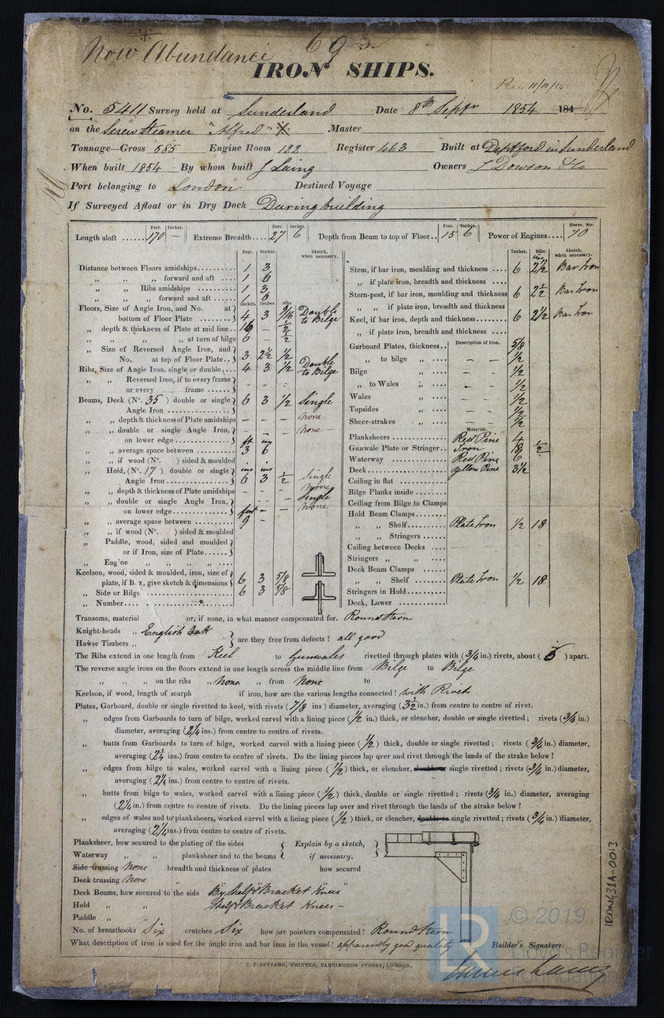 Now Abundance 693
IRON SHIPS.
No. 5411 Survey held at Sunderland Date 8th Septr 1854 184
on the Screw Steamer "Alfred" Master
Tonnage—Gross 585 Engine Room 122 Register 463 Built at Deptford in Sunderland
When built 1854 By whom built J Laing Owners J Dowson & Co
Port belonging to London Destined Voyage
If Surveyed Afloat or in Dry Dock During building
Feet. Inches. Feet. Inches. Feet. Inches. Horse. No.
Length aloft ...... 170 — Extreme Breadth.... 27 6 Depth from Beam to top of Floor.. 15 6 Power of Engines.... 70
Feet. Inches. Sketch, when necessary. Inches. Sketch, when necessary.
Distance between Floors amidships 1 3
„ „ forward and aft 1 6
„ Ribs amidships 1 3
„ „ forward and aft 1 6
Floors, Size of Angle Iron, and No. at bottom of Floor Plate 4 3 9/16 Double to Bilge
„ depth & thickness of Plate at mid line 16 – 1/2
„ „ at turn of bilge 6 – 1/2
„ Size of Reversed Angle Iron, and No. at top of Floor Plate 3 2½ ½
Ribs, Size of Angle Iron, single or double 4 3 ½ Double to Bilge
„ Reversed Iron, if to every frame or every frame – – –
Beams, Deck (No. 35) double or single Angle Iron 6 3 ½ Single
„ depth & thickness of Plate amidships – – – none
„ double or single Angle Iron, on lower edge – – – none
„ average space between 3 6
„ if wood (No. ) sided & moulded
„ Hold, (No. 17) double or single Angle Iron 6 3 ½ Single
„ depth & thickness of Plate amidships – – – none
„ double or single Angle Iron, on lower edge – Single none
„ average space between 9 –
„ if wood (No. ) sided & moulded
„ Paddle, wood, sided and moulded or if Iron, size of Plate
„ Engine „ „ „ „
Keelson, wood, sided & moulded, iron, size of plate, if Box, give sketch & dimensions 6 3 5/8
„ Side or Bilge 6 3 5/8
„ Number
Stem, if bar iron, moulding and thickness 6 2½ Bar Iron
„ if plate iron, breadth and thickness
Stern-post, if bar iron, moulding and thickness 6 2½ Bar Iron
„ if plate iron, breadth and thickness
Keel, if bar iron, depth and thickness 6 2½ Bar Iron
„ if plate iron, breadth and thickness
Description of Iron.
Garboard Plates, thickness 5/8
„ to bilge – – ½
Bilge – – ½
„ to Wales – – ½
Wales – – ½
Topsides – – ½
Sheer-strakes – – ½
Material.
Planksheers Red Pine 4
Gunwale Plate or Stringer Iron 18 ½
Waterway Red Pine 6
Deck Yellow Pine 3½
Ceiling in flat
Bilge Planks inside
Ceiling from Bilge to Clamps
Hold Beam Clamps
„ „ Shelf Plate Iron ½ 18
„ „ Stringers
Ceiling between Decks
Stringers „ „
Deck Beam Clamps
„ „ Shelf Plate Iron ½ 18
Stringers in Hold
Deck, Lower
Transoms, material or, if none, in what manner compensated for. Round Stern
Knight-heads „ English Oak
Hawse Timbers „ are they free from defects? all good
The Ribs extend in one length from Keel to Gunwales rivetted through plates with (3/4 in.) rivets, about ( 6 ) apart.
The reverse angle irons on the floors extend in one length across the middle line from Bilge to Bilge
„ „ on the ribs „ None „ from None to
Keelson, if wood, length of scarph if iron, how are the various lengths connected? with Rivets
Plates, Garboard, double or single rivetted to keel, with rivets (7/8 ins) diameter, averaging (3½ in.) from centre to centre of rivet.
„ edges from Garboards to turn of bilge, worked carvel with a lining piece (½ in.) thick, or clencher, double or single rivetted; rivets (3/4 in.)
diameter, averaging (2¼ ins) from centre to centre of rivets.
„ butts from Garboards to turn of bilge, worked carvel with a lining piece (½) thick, double or single rivetted; rivets (3/4 in.) diameter,
averaging (2¼ ins.) from centre to centre of rivets. Do the lining pieces lap over and rivet through the lands of the strake below?
„ edges from bilge to wales, worked carvel with a lining piece (½) thick, or clencher, double or single rivetted; rivets (3/4 in.)
diameter, averaging (2¼ ins) from centre to centre of rivets.
„ butts from bilge to wales, worked carvel with a lining piece (½) thick, double or single rivetted; rivets (3/4 in.) diameter, averaging
(2¼ in.) from centre to centre of rivets. Do the lining pieces lap over and rivet through the lands of the strake below?
„ edges of wales and to planksheers, worked carvel with a lining piece (½) thick, or clencher, double or single rivetted; rivets (3/4 in.) diameter,
averaging (2¼ ins) from centre to centre of rivets.
Planksheer, how secured to the plating of the sides Explain by a sketch,
Waterway „ „ planksheer and to the beams if necessary.
Side trussing None breadth and thickness of plates how secured
Deck trussing None „
Deck Beams, how secured to the side By Shelf & Bracket Knees
Hold „ „ Shelf & Bracket Knees –
Paddle „ „
No. of breasthooks Six crutches Six how are pointers compensated? Round Stern
What description of iron is used for the angle iron and bar iron in the vessel? apparently good quality Builder's Signature.
James Laing
C. F. SEYFANG, PRINTER, FARRINGDON STREET, LONDON.
IRON431A-0013
LR © 2019